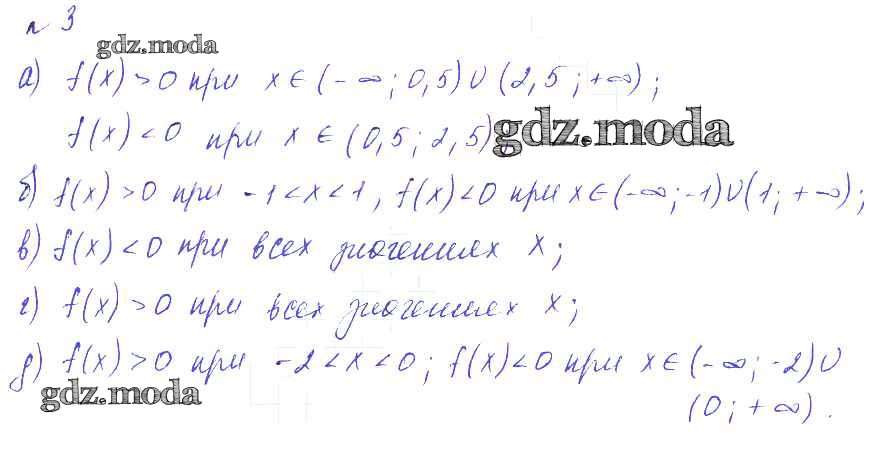 № 3
gdz.moda
а) f(x) > 0 при x ∈ (- ∞ ; 0,5) ∪ (2,5 ; +∞) ;
f(x) < 0 при x ∈ (0,5 ; 2,5)
gdz.moda
б) f(x) > 0 при -1 < x < 1, f(x) < 0 при x ∈ (-∞ ; -1) ∪ (1 ; + ∞) ;
в) f(x) < 0 при всех значениях x ;
г) f(x) > 0 при всех значениях x ;
д) f(x) > 0 при -2 < x < 0 ; f(x) < 0 при x ∈ (- ∞ ; -2) ∪
gdz.moda
(0 ; + ∞) .